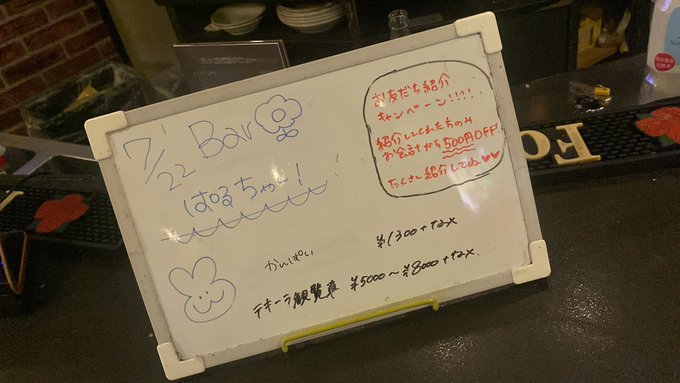 7/22 Bar
ぱるちゃー!
お友だち紹介
キャンペーン!!!!
紹介してくれた方のみ
お会計から500円OFF!
たくさん紹介してね
かんぱい ¥1300+tax
テキーラ観覧車 ¥5000~¥8000+tax.
Fo